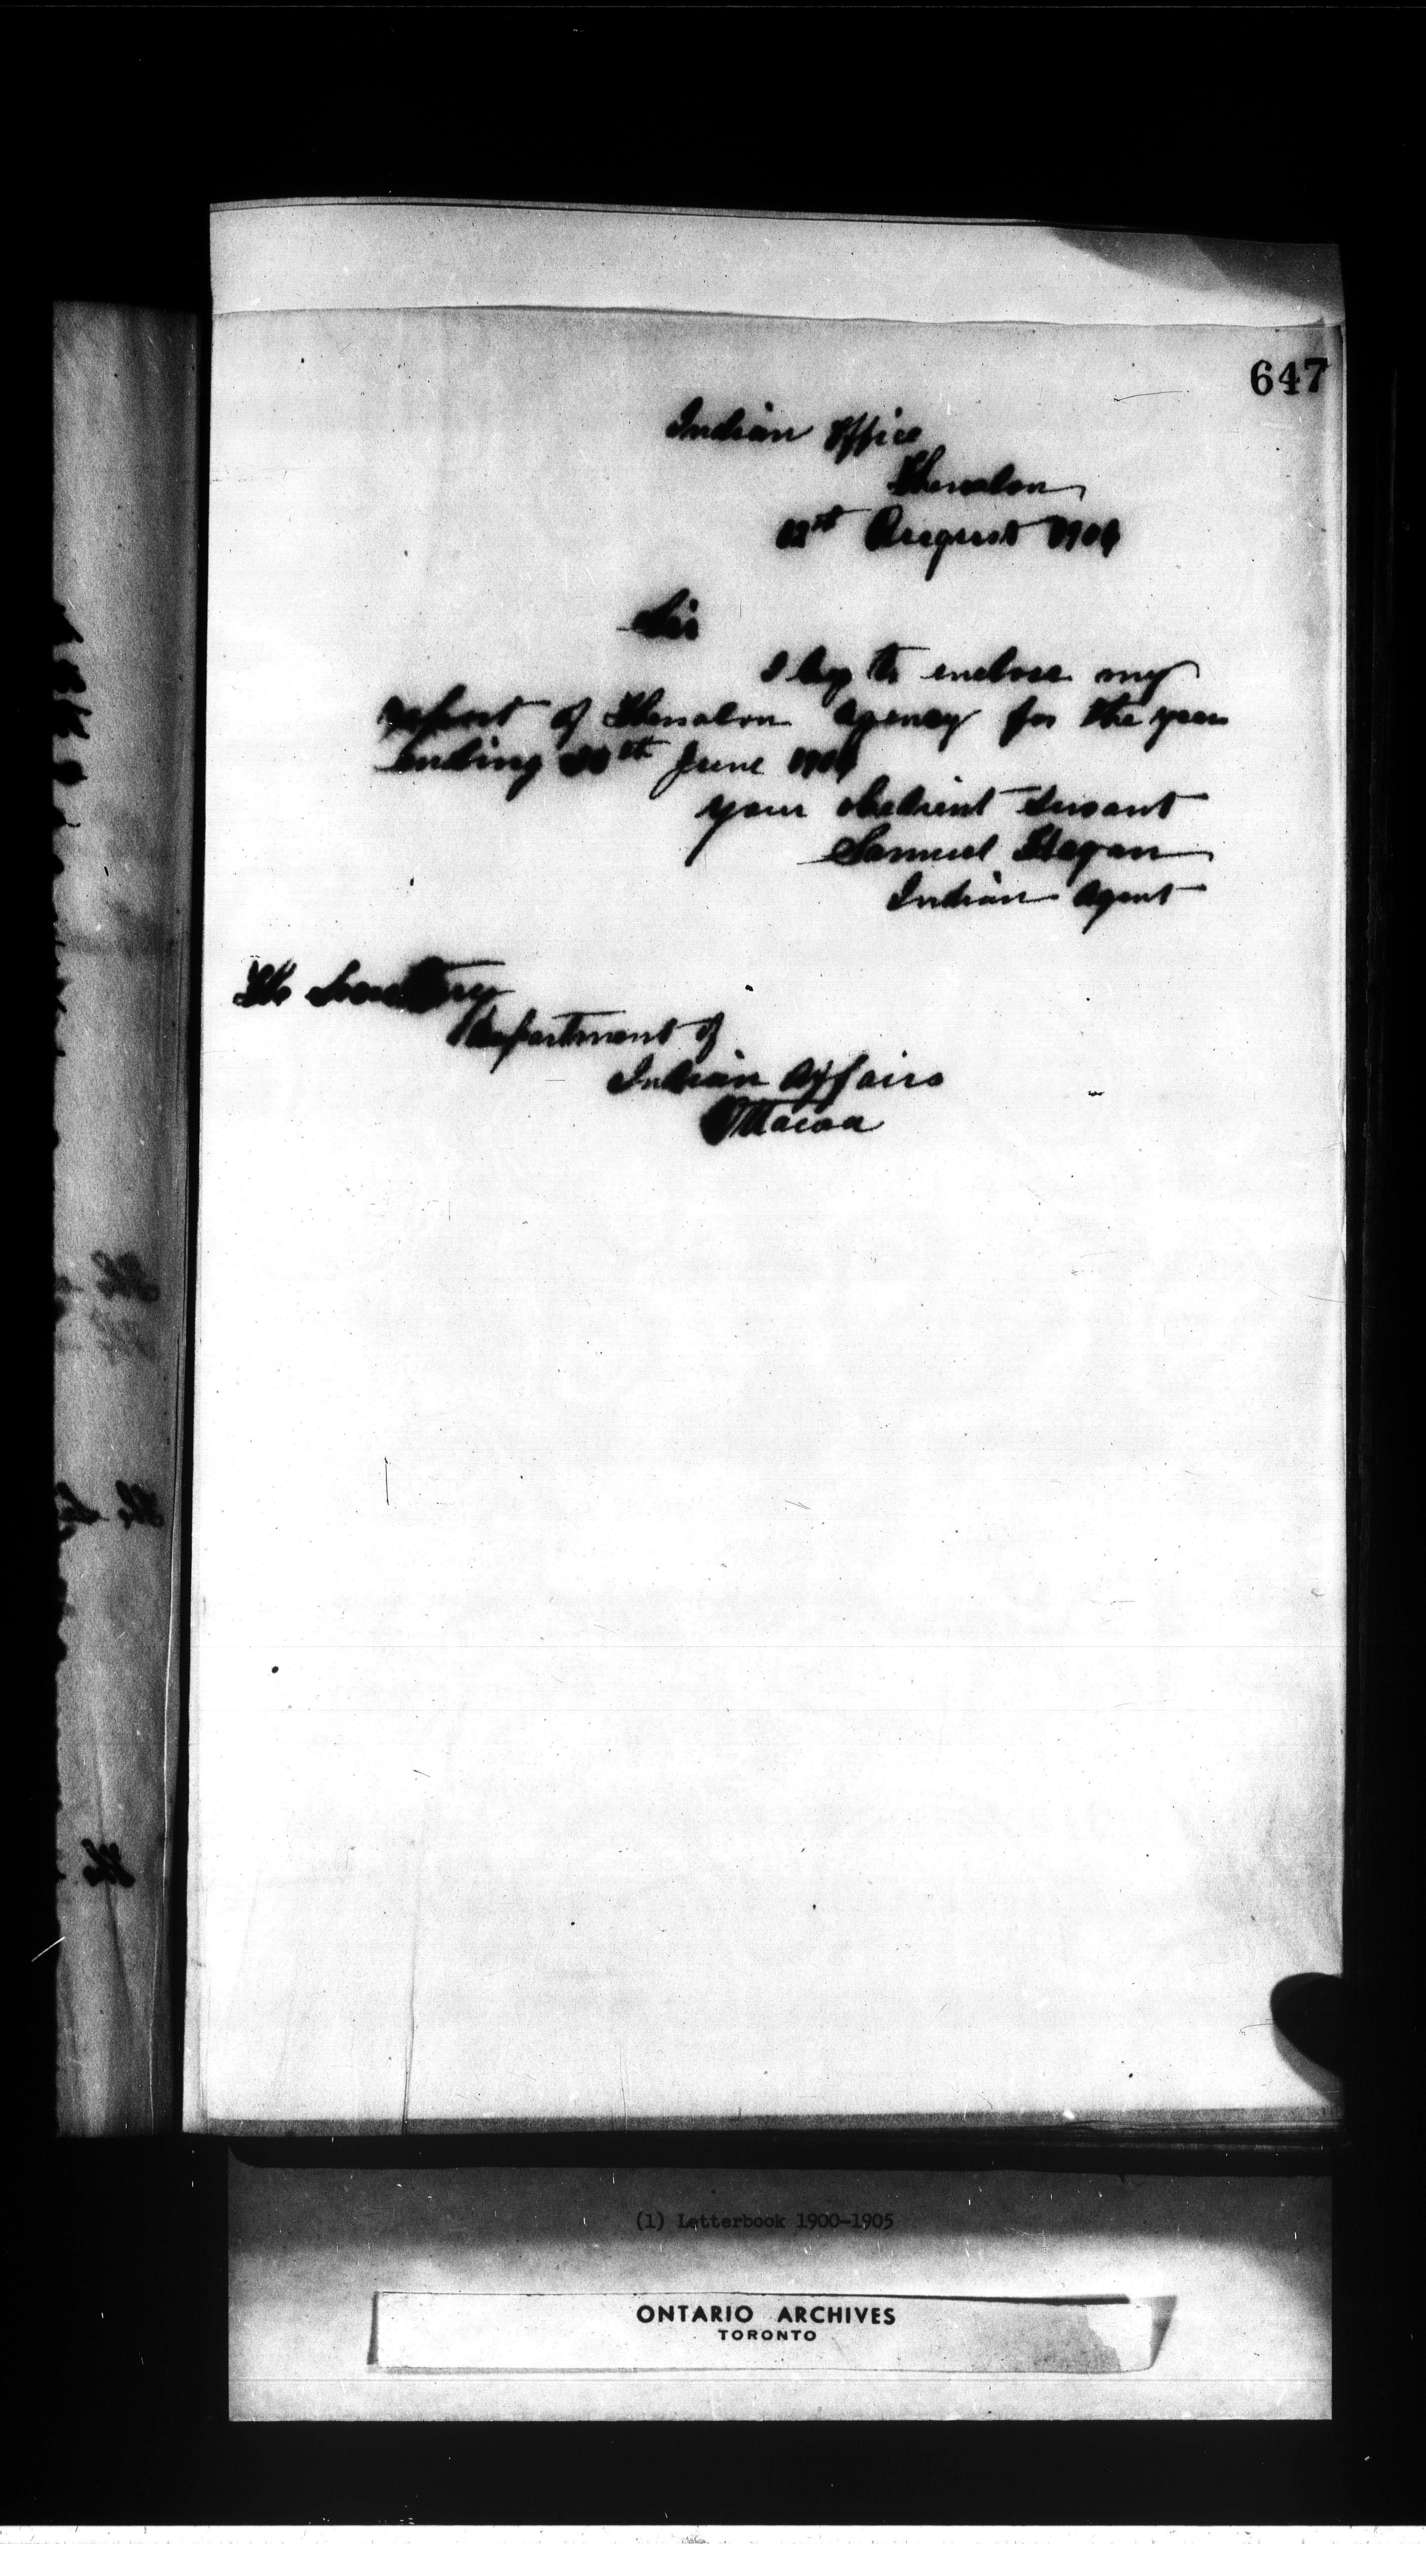 647
Indian Office
Thessalon
August 190
Sir
I beg to enclose my
report of Thessalon Agency for the year
ending 30th June 190
your obedient servant
Samuel Hagan
Indian Agent
The Secretary
Department of
Indian Affairs
Ottawa
(1) Letterbook 1900-1905
ONTARIO ARCHIVES
TORONTO